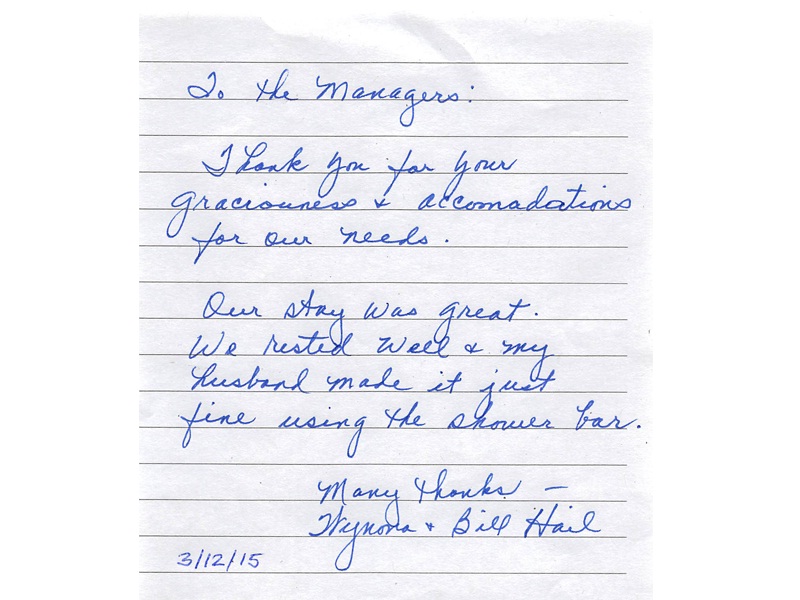 To the Managers:
Thank you for your
graciouness & accomadations
for our needs.
Our stay was great.
We rested well & my
husband made it just
fine using the shower bar.
Many thanks —
Wynona & Bill Hail
3/12/15